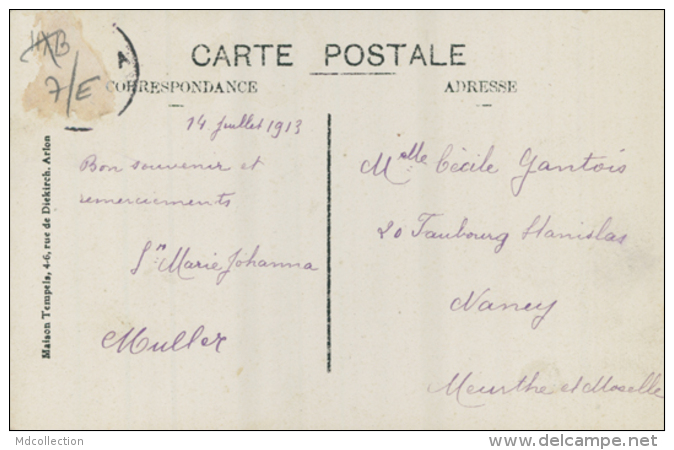 CARTE POSTALE
CORRESPONDANCE
ADRESSE
7/E
14 Juillet 1913
Bon souvenir et
remerciements
Sr Marie Johanna
Muller
Mlle Cécile Gantois
20 Faubourg Stanislas
Nancy
Meurthe et Moselle
Maison Tempels, 4-6, rue de Diekirch. Arlon
Mdcollection
www.delcampe.net